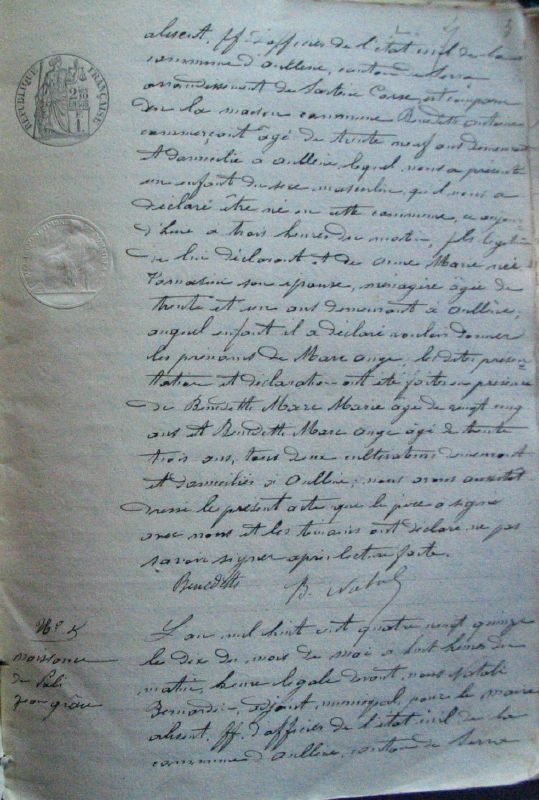 absent. ff. d'officier de l'état civil de la
commune d'Aullène, canton de Serra
arrondissement de Sartène Corse, est comparu
dans la maison commune Benedetti Antoine
commerçant âgé de trente neuf ans demeurant
et domicilié à Aullène lequel nous a présenté
un enfant du sexe masculin qu'il nous a
déclaré être né en cette commune, ce jour
d'hui à trois heures du matin, fils légitime
de lui déclarant et de Anne Marie née
Tomasini son épouse, ménagère âgée de
trente et un ans demeurant à Aullène,
auquel enfant il a déclaré vouloir donner
les prénoms de Marc Ange, lesdites présen
tation et déclaration ont été faites en présence
de Benedetti Marc Marie âgé de vingt cinq
ans et Benedetti Marc Ange âgé de trente
trois ans, tous deux cultivateurs demeurant
et domiciliés à Aullène; nous avons aussitôt
dressé le présent acte que le père a signé
avec nous et les témoins ont déclaré ne pas
savoir signer après lecture faite.
Benedetti B. Natali
N° 5
naissance
de
L'an mil huit cent quatre vingt quinze
le dix du mois de mai à huit heures du
matin, heure légale devant nous Natali
Bernardin, adjoint municipal pour le maire
absent. ff. d'officier de l'état civil de la
commune d'Aullène, canton de Serra
RÉPUBLIQUE FRANÇAISE